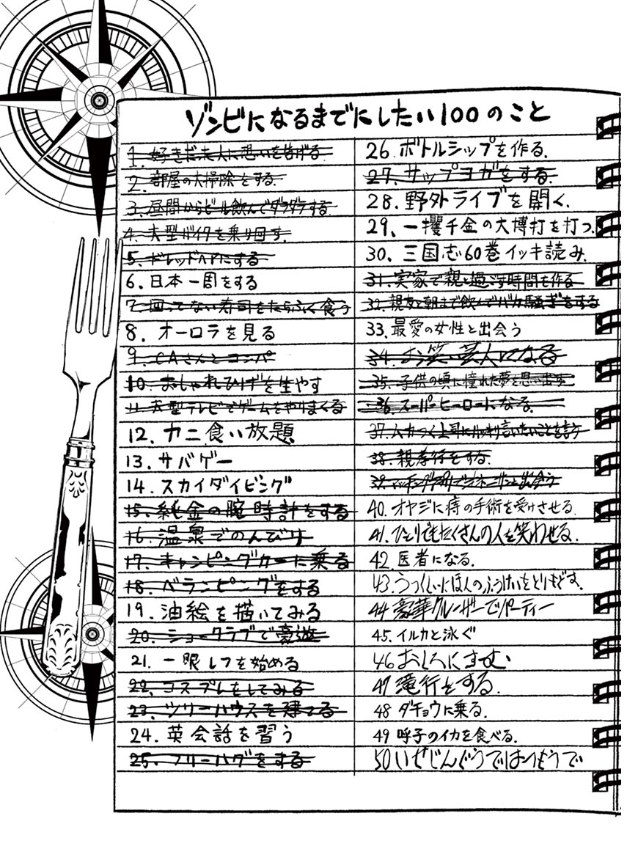 ゾンビになるまでにしたい100のこと
1. 好きだった人に想いを告げる
2. 部屋の大掃除をする.
3. 昼間からビール飲んでダラダラする
4. 大型バイクを乗り回す.
5. ボレッドヘアにする
6. 日本一周をする
7. 回ってない寿司をたらふく食う
8. オーロラを見る
9. CAさんとコンパ
10. おしゃれひげを生やす
11. 大型テレビでゲームをやりまくる
12. カニ食い放題
13. サバゲー
14. スカイダイビング
15. 純金の腕時計をする
16. 温泉でのんびり
17. キャンピングカーに乗る
18. ベランピングをする
19. 油絵を描いてみる
20. ショークラブで豪遊
21. 一眼レフを始める
22. コスプレをしてみる
23. ツリーハウスを建てる
24. 英会話を習う
25. フリーハグをする
26. ボトルシップを作る.
27. サップヨガをする.
28. 野外ライブを開く.
29、一攫千金の大博打を打つ.
30、三国志60巻イッキ読み.
31. 実家で親と過ごす時間を作る
32. 親友と朝まで飲んでバカ騒ぎをする
33. 最愛の女性と出会う
34. お笑い芸人になる
35. 子供の頃に憧れた夢を思い出す
36. スーパーヒーローになる.
37. ムカつく上司にハッキリ言いたいことを言う
38. 親孝行をする.
39.
40. オヤジに痔の手術を受けさせる.
41. ひとりでもたくさんの人を笑わせる.
42. 医者になる.
43. うつくしいにほんのふうけいをとりもどす.
44 豪華クルーザーでパーティー
45. イルカと泳ぐ
46 おしろにすむ
47 滝行をする.
48 ダチョウに乗る.
49 呼子のイカを食べる.
50 いせじんぐうではつもうで